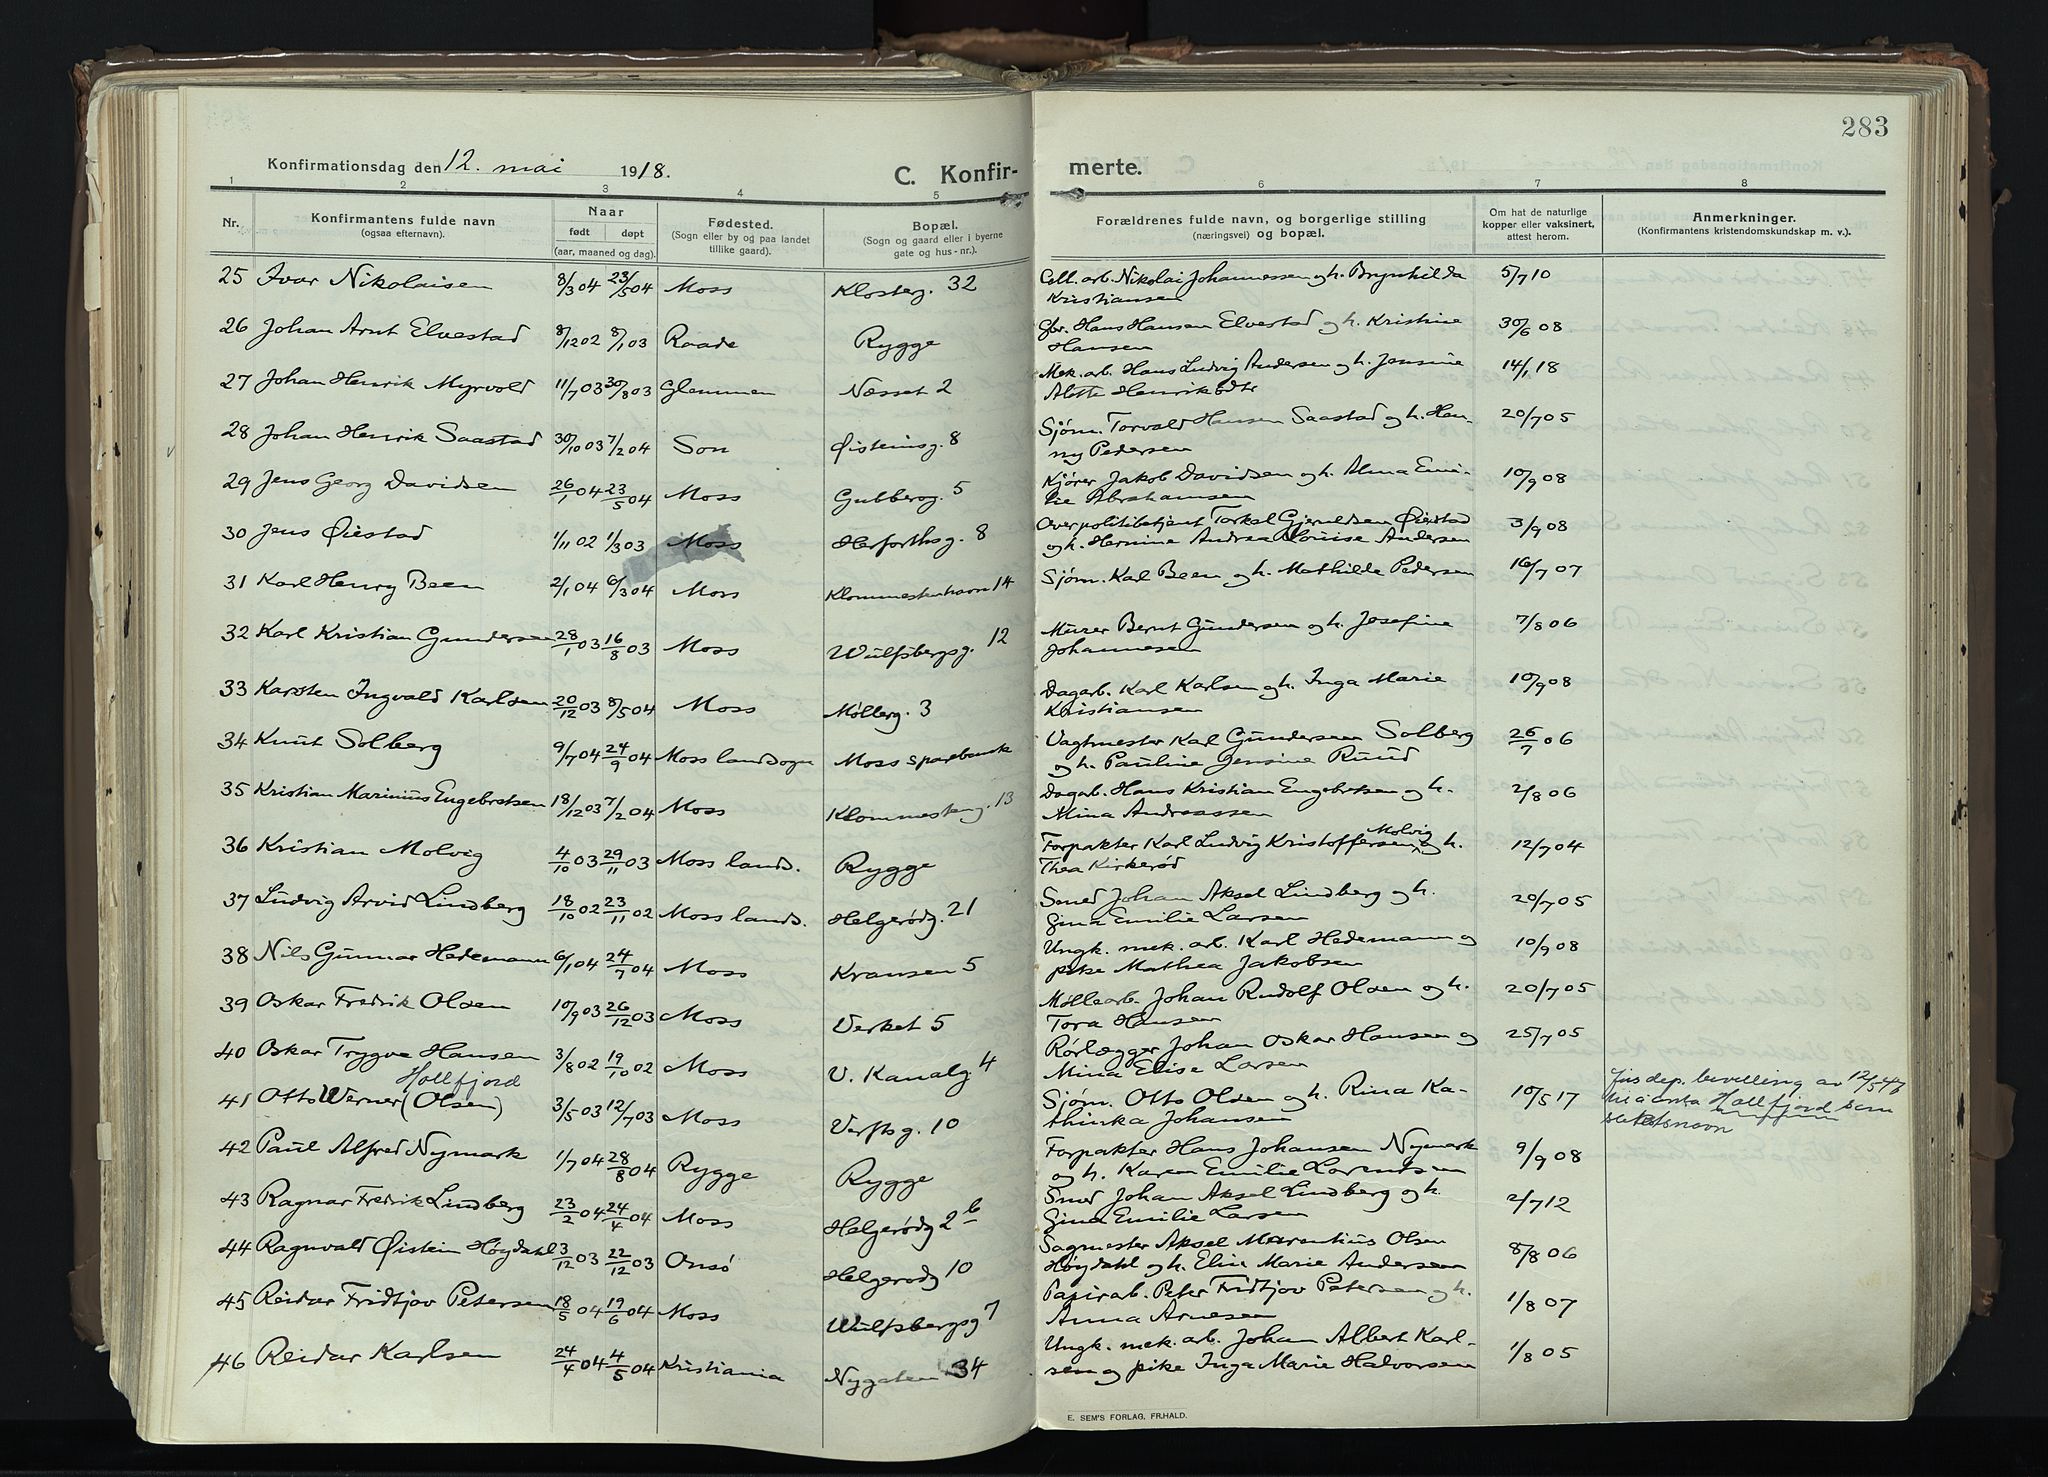 283
Konfirmationsdag den 12. mai 1918.
C. Konfir-
merte.
1 2 3 4 5 6 7 8
Nr.
Konfirmantens fulde navn
(ogsaa efternavn).
Naar
født døpt
(aar, maaned og dag).
Fødested.
(Sogn eller by og paa landet
tillike gaard).
Bopæl.
(Sogn og gaard eller i byerne
gate og hus-nr.).
Forældrenes fulde navn, og borgerlige stilling
(næringsvei) og bopæl.
Om hat de naturlige
kopper eller vaksinert,
attest herom.
Anmerkninger.
(Konfirmantens kristendomskundskap m. v.).
25 Ivar Nikolaisen 8/3 04 23/5 04 Moss Klosterg. 32 Cell. arb. Nikolai Johannessen og h. Brynhilda 5/7 10
Kristiansen
26 Johan Arnt Elvestad 8/12 02 8/1 03 Raade Rygge Gbr. Hans Hansen Elvestad og h. Kristine 30/6 08
Hansen
27 Johan Henrik Myrvold 11/7 03 30/8 03 Glemmen Næsset 2 Mek. arb. Hans Ludvig Andersen og h. Jensine 14/1 18
Alette Henriksdtr
28 Johan Henrik Saastad 30/10 03 7/2 04 Son Øisteinsg. 8 Sjøm. Torvald Hansen Saastad og h. Hen- 20/7 05
ny Pedersen
29 Jens Georg Davidsen 26/1 04 23/5 04 Moss Gubberog. 5 Kjører Jakob Davidsen og h. Alma Emi- 10/9 08
lie Abrahamsen
30 Jens Øiestad 1/11 02 1/3 03 Moss Herforthsg. 8 Overpolitibetjent Torkel Gjeruldsen Øiestad 3/9 08
og h. Hermine Andrea Louise Andersen
31 Karl Henry Been 2/1 04 6/3 04 Moss Klommestenhavn 14 Sjøm. Karl Been og h. Mathilde Pedersen 16/7 07
32 Karl Kristian Gundersen 28/1 03 16/8 03 Moss Wulfsbergsg. 12 Murer Bernt Gundersen og h. Josefine 7/8 06
Johannesen
33 Karsten Ingvald Karlsen 20/12 03 8/5 04 Moss Mølleg. 3 Dagarb. Karl Karlsen og h. Inga Marie 10/9 08
Kristiansen
34 Knut Solberg 9/7 04 24/9 04 Moss landsogn Moss sparebank Vagtmester Karl Gundersen Solberg 26/7 06
og h. Pauline Jensine Ruud
35 Kristian Marinius Engebretsen 18/12 03 7/2 04 Moss Klommesteng. 13 Dagarb. Hans Kristian Engebretsen og h. 2/8 06
Mina Andreassen
36 Kristian Molvig 4/10 03 29/11 03 Moss lands. Rygge Forpakter Karl Ludvig Kristoffersen Molvig og h. 12/7 04
Thea Kirkerød
37 Ludvig Arvid Lindberg 18/10 02 23/11 02 Moss lands. Helgerødg. 21 Smed Johan Aksel Lindberg og h. 20/7 05
Gina Emilie Larsen
38 Nils Gunnar Hedemann 6/1 04 24/7 04 Moss Kransen 5 Ungk. mek. arb. Karl Hedemann og 10/9 08
pike Mathea Jakobsen
39 Oskar Fredrik Olsen 10/9 03 26/12 03 Moss Verket 5 Møllearb. Johan Rudolf Olsen og h. 20/7 05
Tora Hansen
40 Oskar Trygve Hansen 3/8 02 19/10 02 Moss V. Kanalg 4 Rørlægger Johan Oskar Hansen og 25/7 05
Mina Elise Larsen
Hollfjord
41 Otto Werner (Olsen) 3/5 03 12/7 03 Moss Verftsg. 10 Sjøm. Otto Olsen og h. Rina Ka- 10/5 17 Jus dep. bevilling av 12/5 47
thinka Johansen til å anta Hollfjord som
slektsnavn
42 Paul Alfred Nymark 1/7 04 28/8 04 Rygge Rygge Forpakter Hans Johansen Nymark 9/9 08
og h. Karen Emilie Lorentsen
43 Ragnar Fredrik Lindberg 23/2 04 24/4 04 Moss Helgerødg 2 b Smed Johan Aksel Lindberg og h. 2/7 12
Gina Emilie Larsen
44 Ragnvald Øistein Høydahl 3/12 03 22/12 03 Onsø Helgerødg 10 Sagmester Aksel Marentius Olsen 8/8 06
Høydahl og h. Elin Marie Andersen
45 Reidar Fridtjov Petersen 18/5 04 19/6 04 Moss Wulfsbergsg 7 Papirarb. Peter Fridtjov Petersen og h. 1/8 07
Anna Arnesen
46 Reidar Karlsen 24/4 04 4/5 04 Kristiania Nygaten 34 Ungk. mek. arb. Johan Albert Karl- 1/8 05
sen og pike Inga Marie Halvorsen
E. SEM'S FORLAG, FR.HALD.